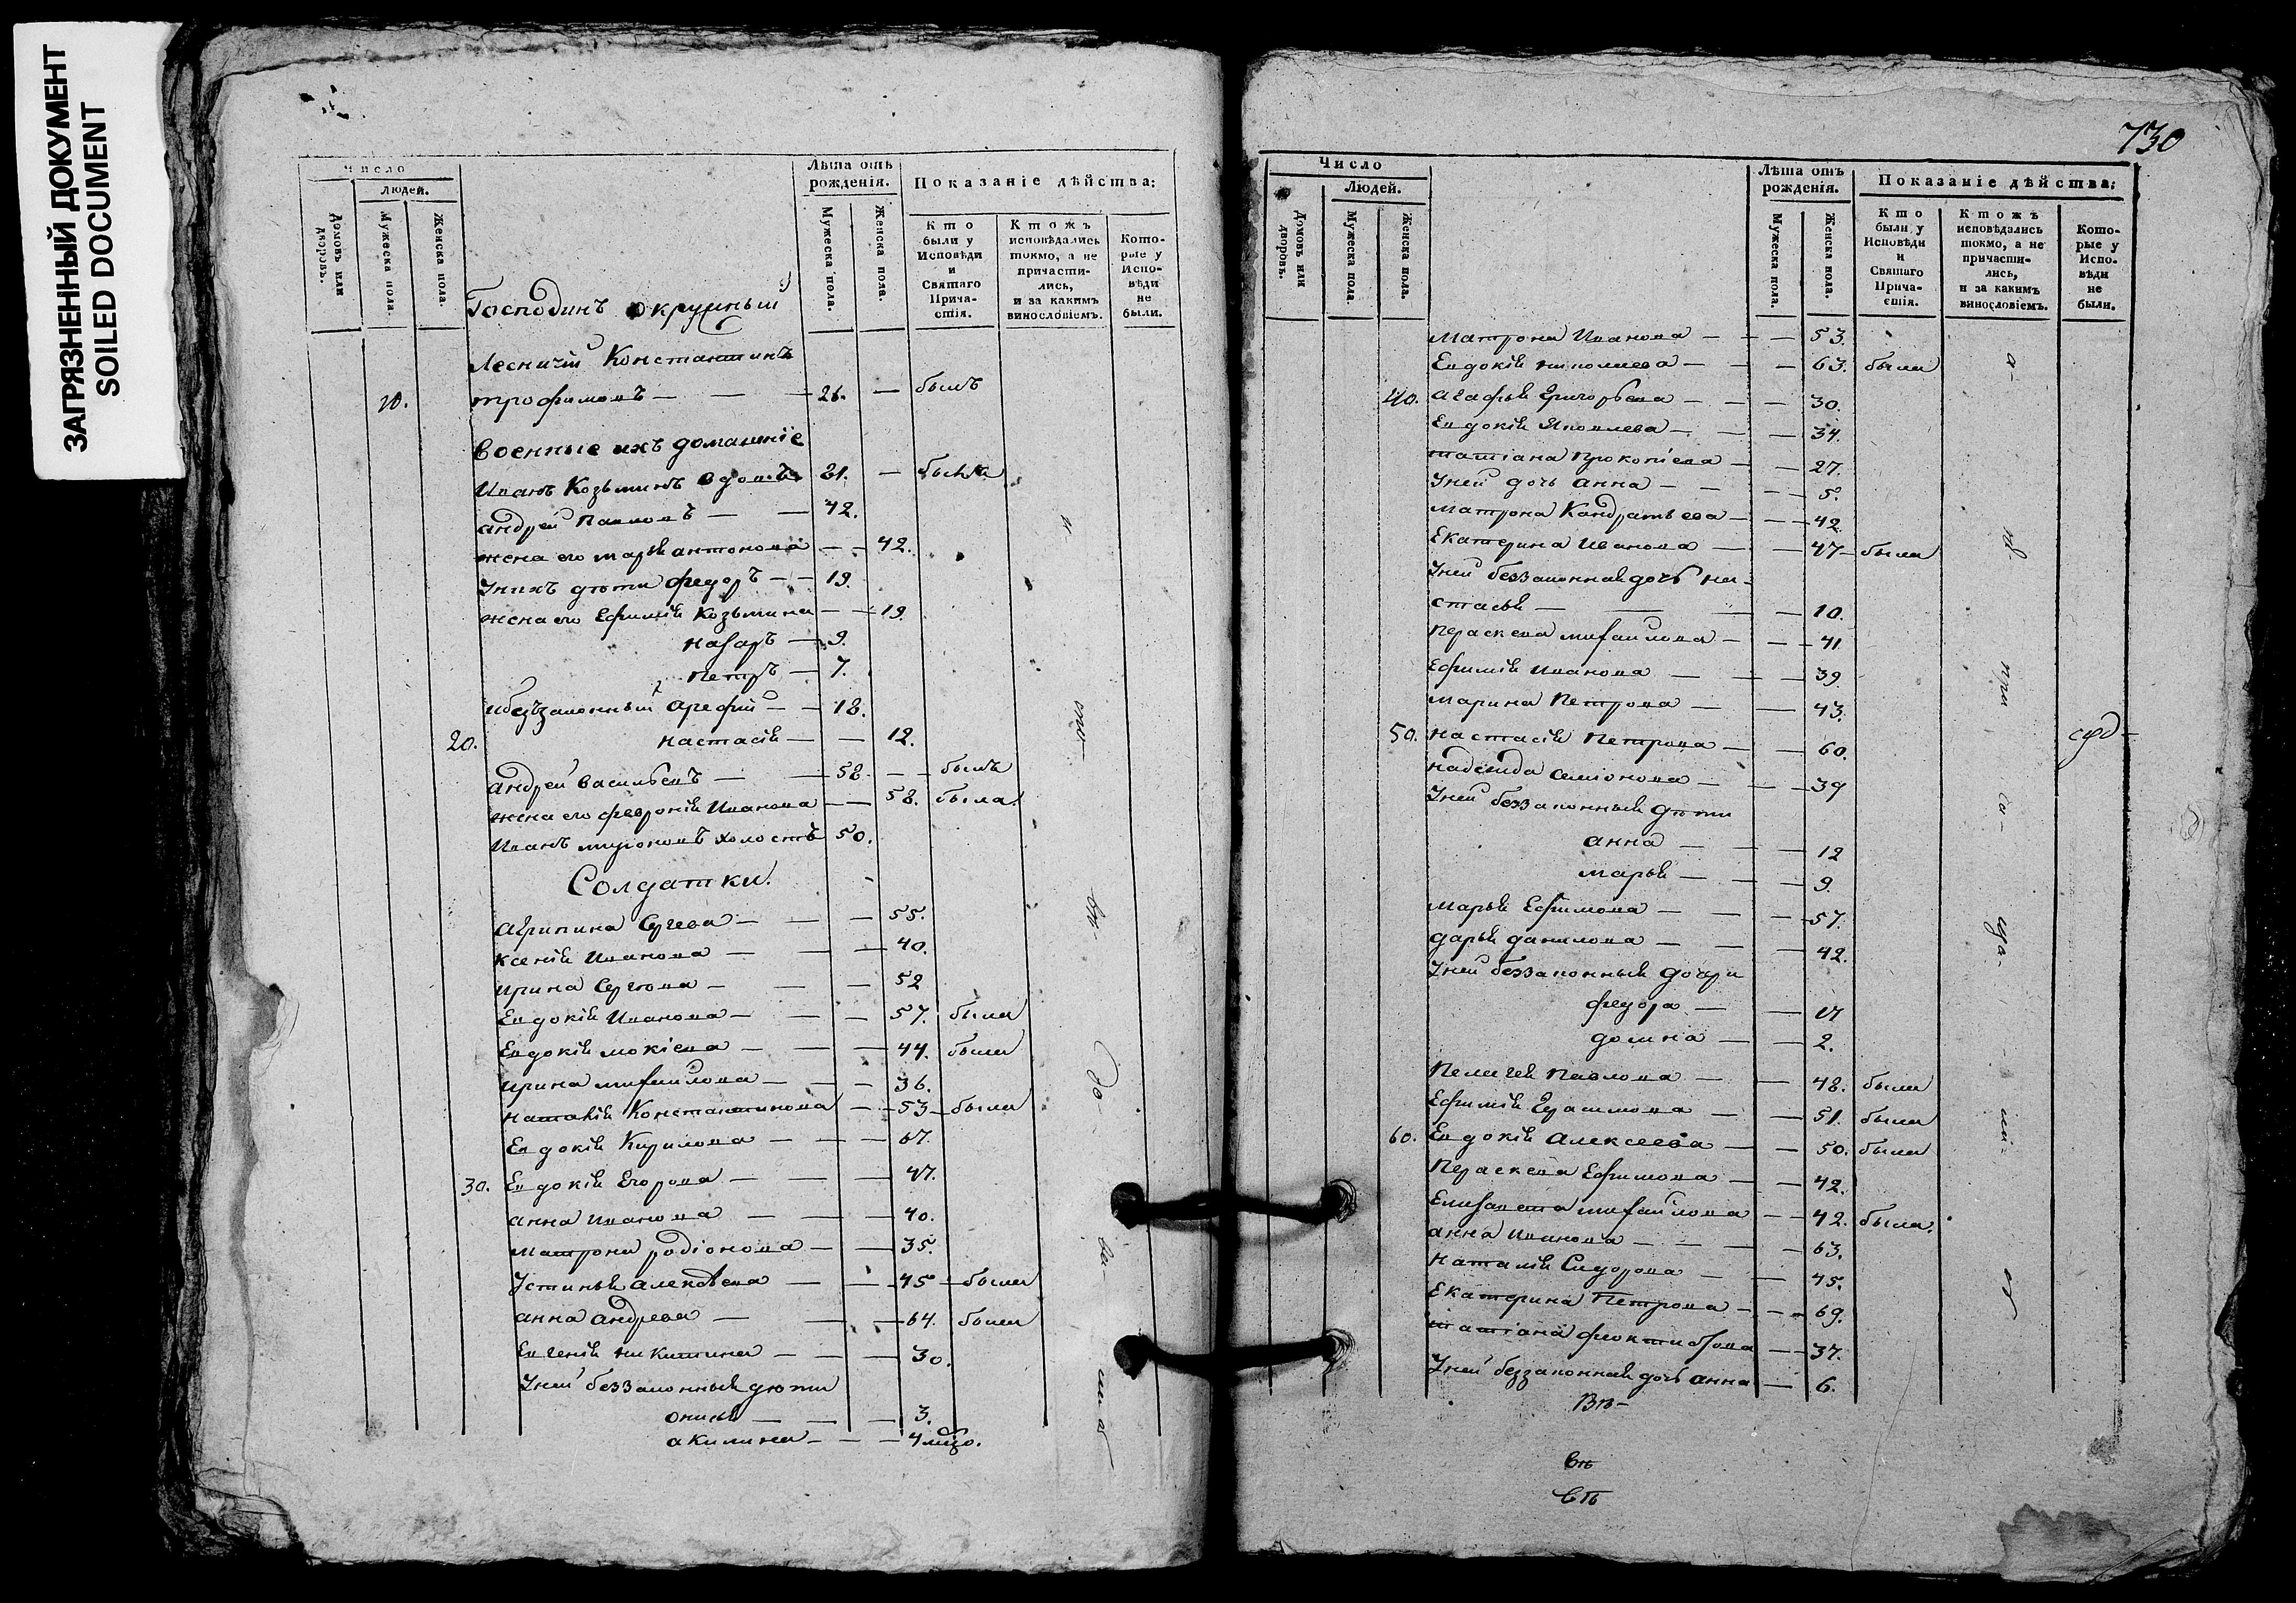 ЗАГРЯЗНЕННЫЙ ДОКУМЕНТ
SOILED DOCUMENT
Число
Людей.
Домовъ или дворовъ.
Мужеска пола.
Женска пола.
Лѣта отъ рожденія.
Мужеска пола.
Женска пола.
Показаніе дѣйства:
Кто были у Исповѣди и Святаго Прича- стія.
Ктожъ исповѣдались токмо, а не причасти- лись, и за какимъ винословіемъ.
Кото- рые у Испо- вѣди не были.
Господинъ окружный
Лесничій Константинъ
10. трофимовъ — — — 26. — былъ
Военные ихъ домашніе
Иванъ Козьминъ вдовъ 21. —
андрей Павловъ — — 42.
жена его марья антонова — — 42.
Унихъ дѣти федоръ — — 19.
жена его Ефимія Козьмина — — 19.
назаръ — 9.
Петръ — 7.
ибеззаконный Арефій — — 18.
20. настасія — — 12.
андрей Васильевъ — — 58. — — былъ
жена его феѵронія Иванова — — 58. была
Иванъ мироновъ холостъ 50.
Солдатки.
Агрипина Сергева — — — 55.
Ксенія Иванова — — — 40.
Ирина Сергѣева — — — 52
Евдокія Иванова — — — 57. была
Евдокія мокіева — — — 44. была
Ирина михайлова — — — 36.
Наталія Константинова — — 53 — была
Евдокія Кирилова — — — 67.
30. Евдокія Егорова — — — 47.
анна Иванова — — — 40.
матрона родіонова — — 35.
Устинья алексѣева — — 45 — была
анна андреева — — — 64. была
Евгенія никитина — — — 30.
Уней беззаконныя дѣти
— — — 3.
акилина — — — 4
730
Число
Людей.
Домовъ или дворовъ.
Мужеска пола.
Женска пола.
Лѣта отъ рожденія.
Мужеска пола.
Женска пола.
Показаніе дѣйства:
Кто были у Исповѣди и Святаго Прича- стія.
Ктожъ исповѣдались токмо, а не причасти- лись, и за какимъ винословіемъ.
Кото- рые у Испо- вѣди не были.
матрона Иванова — — — 53.
Евдокія николаева — — — 63. была
40. агафья Григорьева — — — 30.
Евдокія Яковлева — — — 34.
татіана Прокопіева — — 27.
Уней дочь анна — — — 5.
матрона Кандратьева — — — 42
Екатерина Иванова — — 47 — была
Уней беззаконная дочь на-
стасья — — — — 10.
Параскева михайлова — — 41
Ефимія Иванова — — — 39
марина Петрова — — 43.
50. настасія Петрова — — 60.
надежда семіонова — — — 39
Уней беззаконныя дѣти
анна — — — 12
марья — — — 9.
марья Ефимова — — — 57.
дарья данилова — — — 42.
Уней беззаконныя дочери
федора — — 17
домна — — 2.
Пелагея Павлова — — 48. была
Ефимія Герасимова — — 51. была
60. Евдокія Алексеева — — 50. была
Параскева Ефимова — — 42.
Елизавета михайлова — — 42. была.
анна Иванова — — — 63.
Наталія Сидорова — — 45.
Екатерина Петрова — — — 69.
татіана — 37.
Уней беззаконная дочь анна — 6.